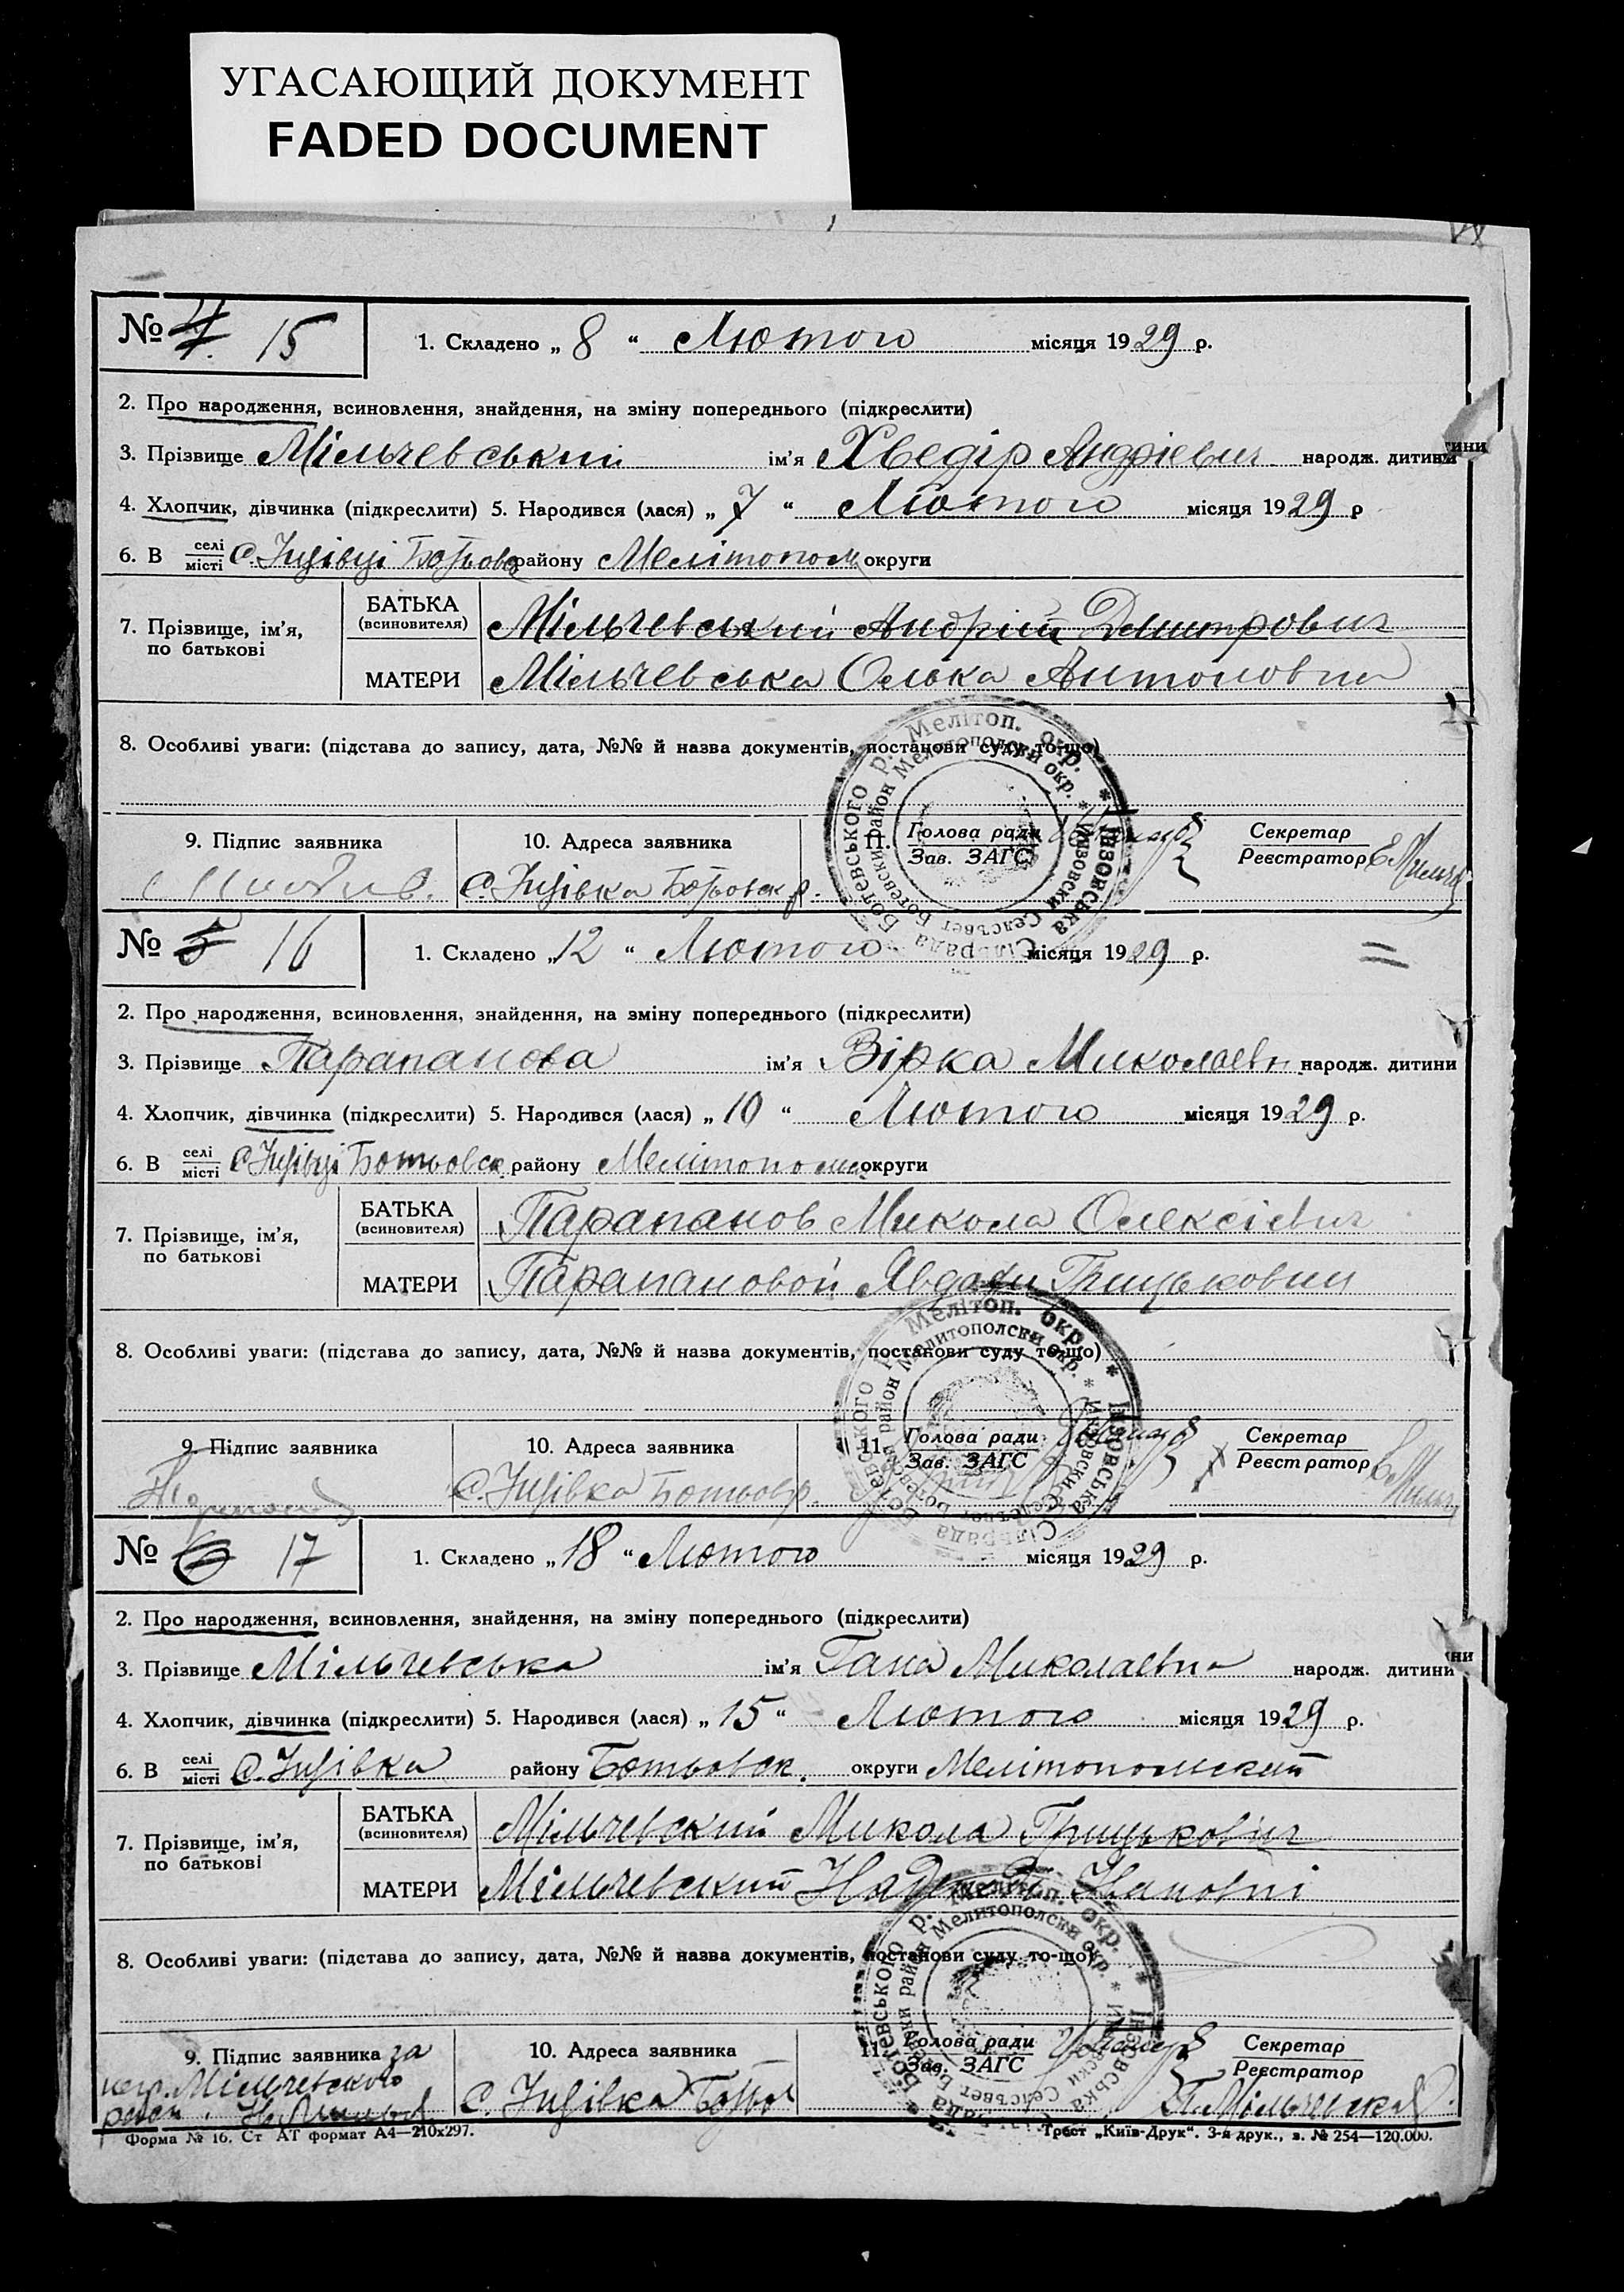 УГАСАЮЩИЙ ДОКУМЕНТ
FADED DOCUMENT
№ 4. 15
1. Складено „ 8 “ Лютого місяця 1929 р.
2. Про народження, всиновлення, знайдення, на зміну попереднього (підкреслити)
3. Прізвище Мільчевський ім'я Хведір Андрієвич народж. дитини
4. Хлопчик, дівчинка (підкреслити) 5. Народився (лася) „ 7 “ Лютого місяця 1929 р
6. В селі місті с. Інзівці району Мелітопол округи
7. Прізвище, ім'я, по батькові
БАТЬКА (всиновителя) Мільчевський Андрій Дмитрович
МАТЕРИ Мільчевська Олька Антоновна
8. Особливі уваги: (підстава до запису, дата, №№ й назва документів, постанови суду то-що)
9. Підпис заявника 10. Адреса заявника 11. Голова ради Зав. ЗАГС Секретар Реєстратор
с. Інзівка Ботьовск р.
№ 5 16
1. Складено „ 12 “ Лютого місяця 1929 р.
2. Про народження, всиновлення, знайдення, на зміну попереднього (підкреслити)
3. Прізвище Парапанова ім'я Вірка Миколаевн народж. дитини
4. Хлопчик, дівчинка (підкреслити) 5. Народився (лася) „ 10 “ Лютого місяця 1929 р.
6. В селі місті с. Інзівці Ботьовск району Мелітополь округи
7. Прізвище, ім'я, по батькові
БАТЬКА (всиновителя) Парапанов Микола Олексієвич
МАТЕРИ Парапановой Явдохи Грицьковни
8. Особливі уваги: (підстава до запису, дата, №№ й назва документів, постанови суду то-що)
9. Підпис заявника 10. Адреса заявника 11. Голова ради Зав. ЗАГС Секретар Реєстратор
с. Інзівка Ботьов р.
№ 6 17
1. Складено „ 18 “ Лютого місяця 1929 р.
2. Про народження, всиновлення, знайдення, на зміну попереднього (підкреслити)
3. Прізвище Мільчевська ім'я Гана Миколаевна народж. дитини
4. Хлопчик, дівчинка (підкреслити) 5. Народився (лася) „ 15 “ Лютого місяця 1929 р.
6. В селі місті с. Інзівка району Ботьовск. округи Мелітопольский
7. Прізвище, ім'я, по батькові
БАТЬКА (всиновителя) Мільчевский Микола Грицькович
МАТЕРИ Мільчевский
8. Особливі уваги: (підстава до запису, дата, №№ й назва документів, постанови суду то-що)
9. Підпис заявника за 10. Адреса заявника 11. Голова ради Зав. ЗАГС Секретар Реєстратор
Мільчевского
с. Інзівка
Форма № 16. Ст АТ формат А4—210х297. Трест „Київ-Друк“. 3-я друк., з. № 254—120.000.